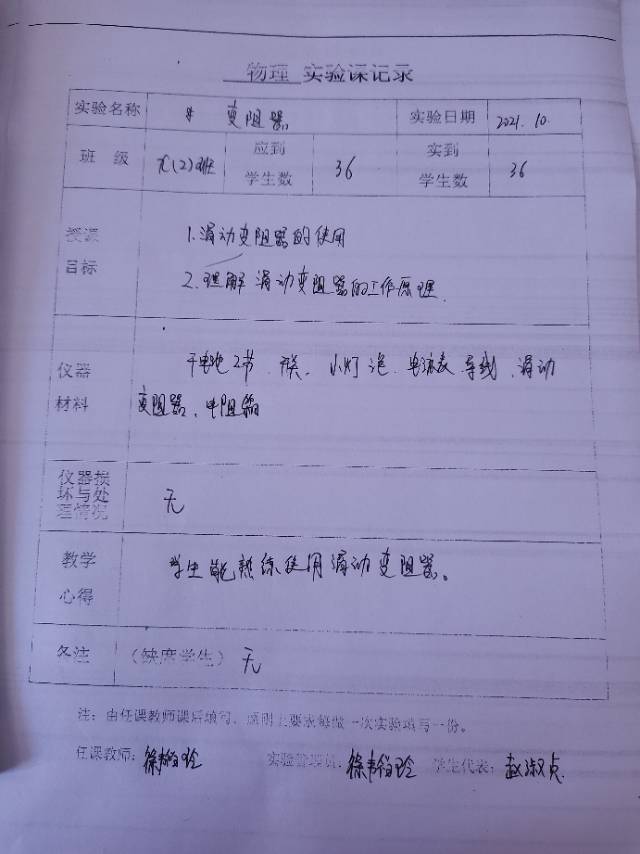 物理 实验课记录
实验名称 变阻器 实验日期 2021.10.
班级 九(2)班 应到学生数 36 实到学生数 36
授课目标
1.滑动变阻器的使用
2.理解滑动变阻器的工作原理.
仪器材料
干电池2节、开关、小灯泡、电流表、导线、滑动
变阻器、电阻箱
仪器损坏与处理情况 无
教学心得 学生能熟练使用滑动变阻器。
备注 (缺席学生) 无
注:由任课教师课后填写,原则上要求每做一次实验填写一份。
任课教师: 实验管理员: 学生代表:赵淑贞